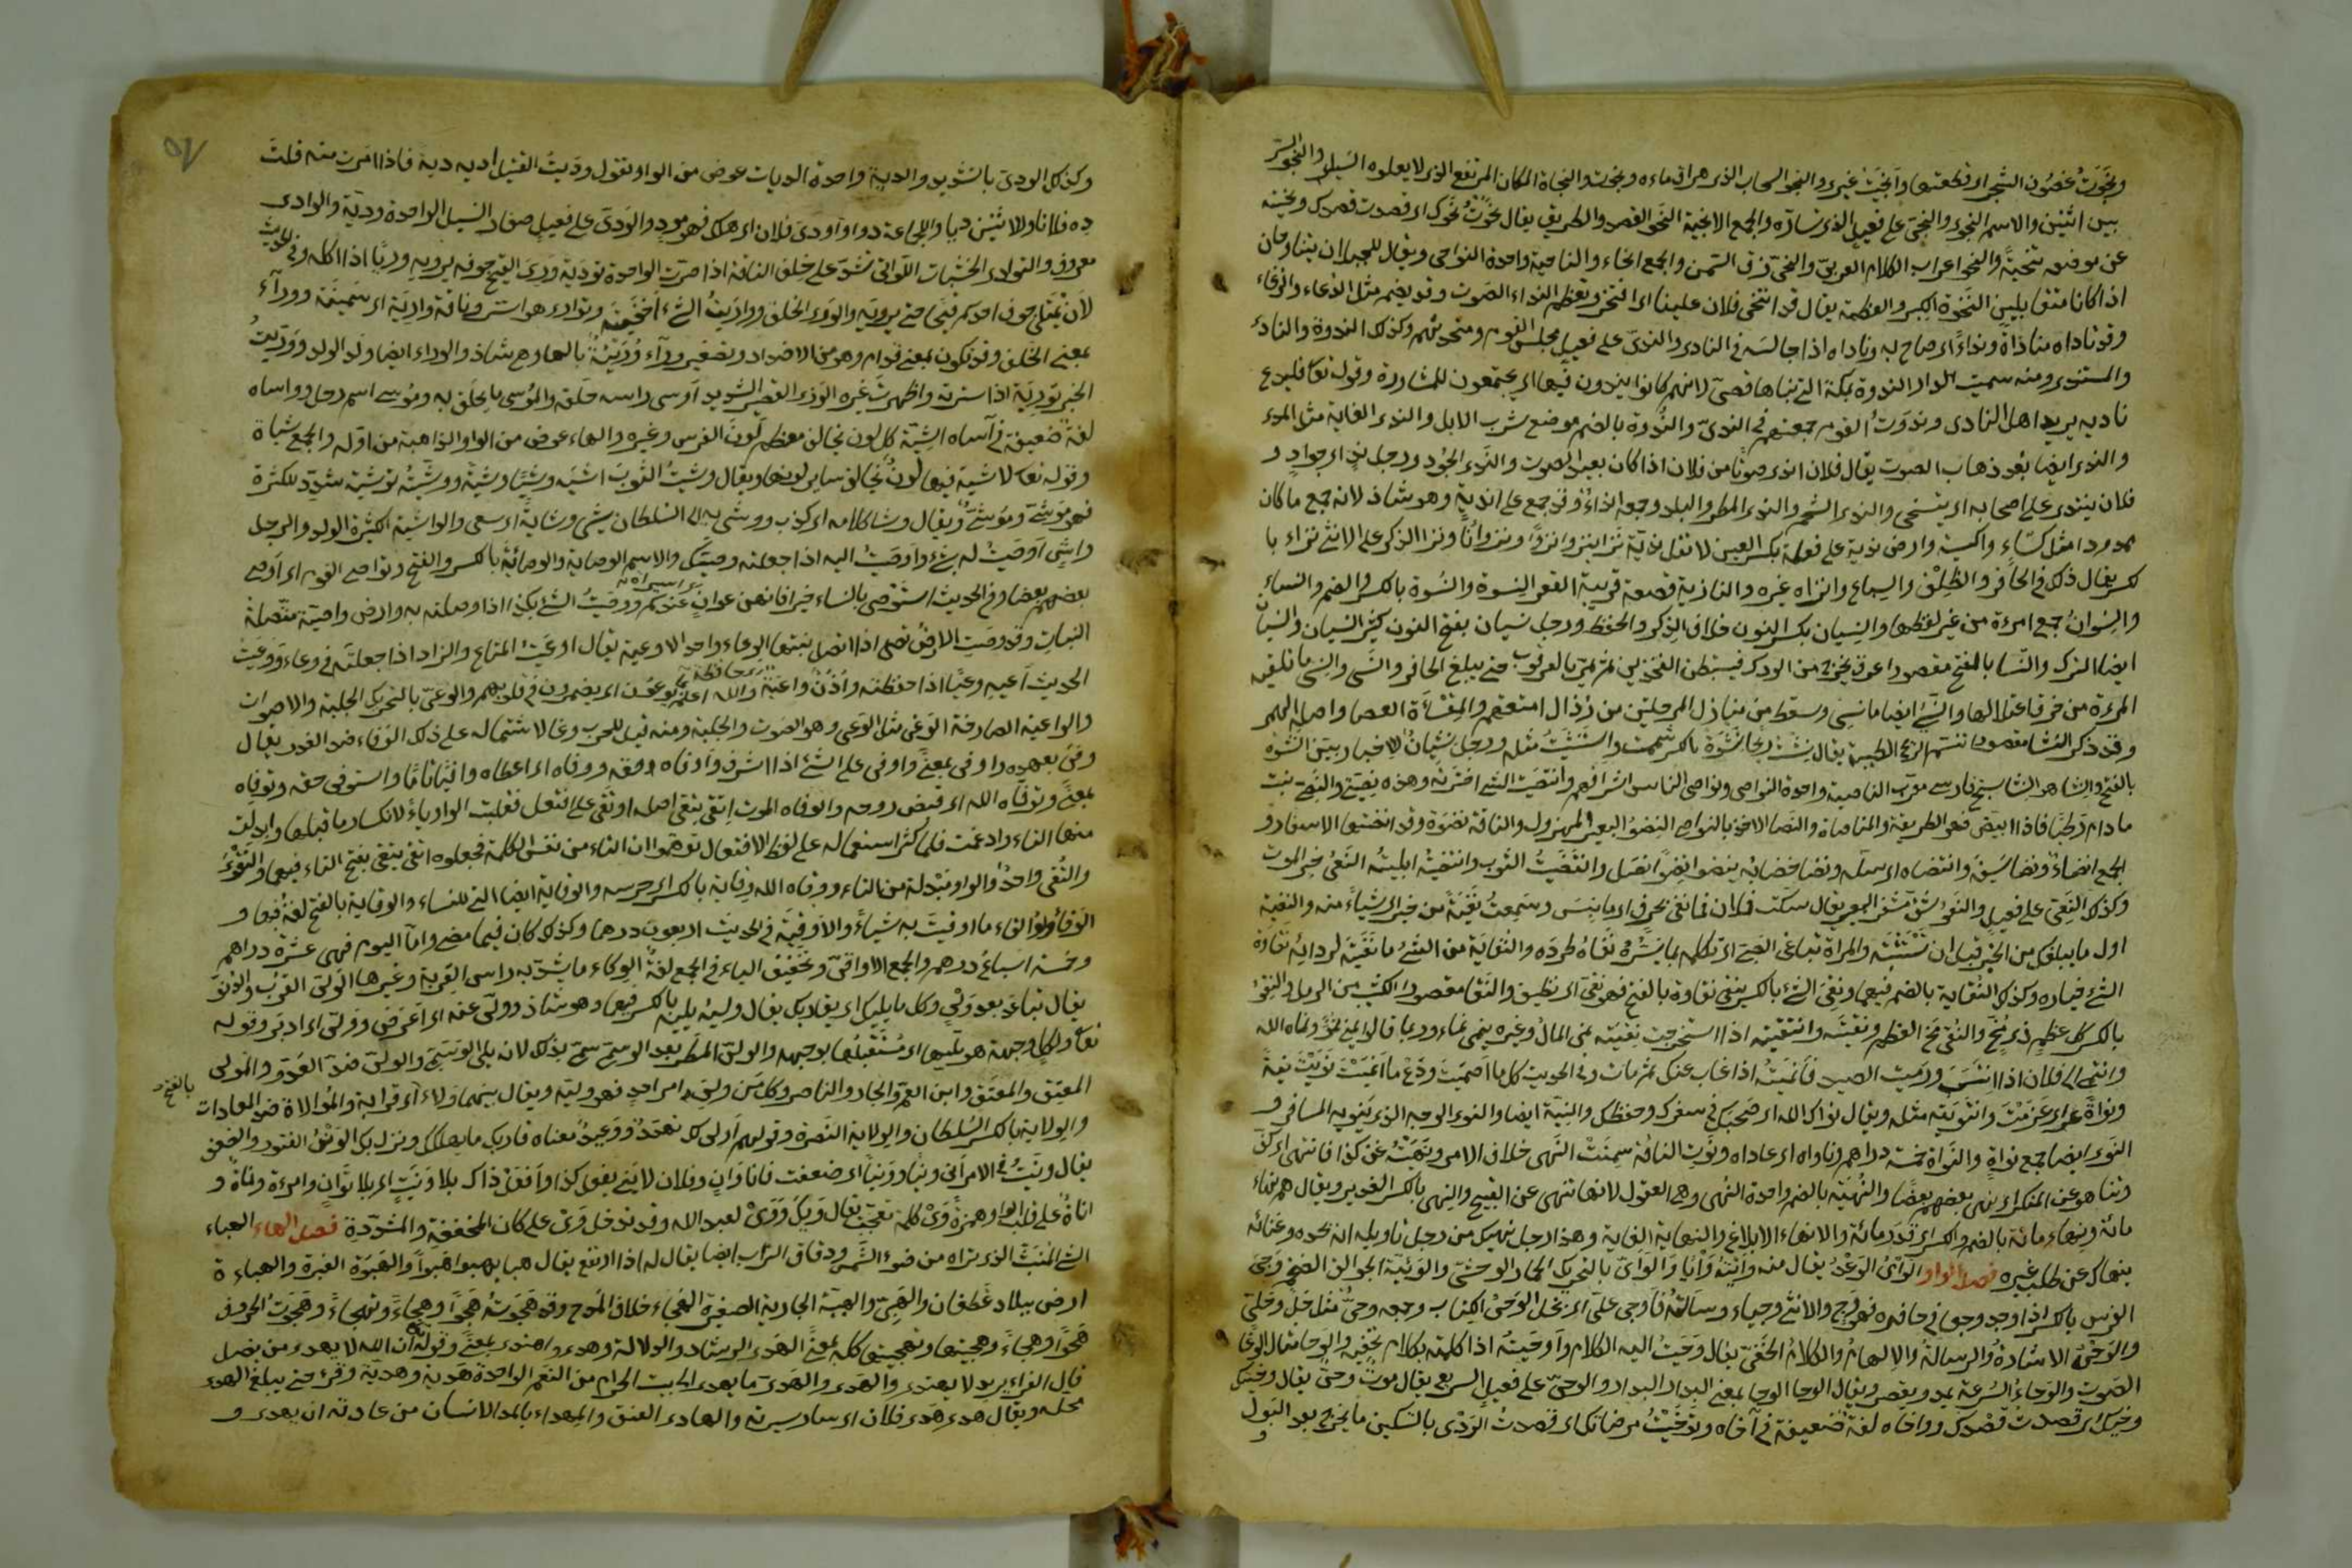 ونجوت غصون الشجر اى قطعتها وانجيت غيرى والنجو السحاب الذى هراق ماءه ونجوت والنجاة المكان المرتفع الذى لا يعلوه السيل والنجو السر
بين اثنين والاسم النجوى والنجى على فعيل الذى تساره والجمع الانجية النحو القصد والطريق يقال نحوت نحوك اى قصدت قصدك ونحيته
عن موضعه تنحية والنحو اعراب الكلام العربى والنحى زق السمن والجمع انحاء والناحية واحدة النواحى ويقال للجبلان يتناوحان
اذا كانا متقابلين النخوة الكبر والعظمة يقال قد انتخى فلان علينا اى افتخر وتعظم النداء الصوت وقد يضم مثل الدعاء والرغاء
وقد ناداه مناداة ونداءً اى صاح به وناداه اذا جالسه فى النادى والندى على فعيل مجلس القوم ومتحدثهم وكذلك الندوة والنادى
والمنتدى ومنه سميت الدار الندوة بمكة التى بناها قصى لانهم كانوا يندون فيها اى يجتمعون للمشاورة وقوله تعالى فليدع
ناديه يريد اهل النادى وندوت القوم جمعتهم فى الندى والندوة بالضم موضع شرب الابل والندى الغاية مثل المدى
والندى ايضا بعد ذهاب الصوت يقال فلان اندى صوتا من فلان اذا كان بعيد الصوت والندى الجود ورجل ند اى جواد و
فلان يتندى على اصحابه اى يتسخى والندى الشحم والندى المطر والبلد وجمعه انداء وقد جمع على اندية وهو شاذ لانه جمع ما كان
ممدودا مثل كساء واكسية وارض ندية على فعلة بكسر العين لا تقل ندية نزا ينزو نزوًا ونزوانًا ونزا الذكر على الانثى نزاء با
لكسر يقال ذلك فى الحافر والظلف والسباع وانزاه غيره والنازية قصعة قريبة القعر النسوة والنسوة بالكسر والضم والنساء
والنسوان جمع امرءة من غير لفظها والنسيان بكسر النون خلاف الذكر والحفظ ورجل نسيان بفتح النون كثير النسيان والنسيان
ايضا الترك والنسا بالفتح مقصورا عرق يخرج من الورك فيستبطن الفخذين ثم يمر بالعرقوب حتى يبلغ الحافر والنسى والنسى ما تلقيه
المرءة من خرق اعتلالها والنسى ايضا ما نسى وسقط من منازل المرحلين من رذال امتعتهم والمنساة العصا واصله الهمز
وقد ذكر النشا مقصورا نسيم الريح الطيبة يقال نشيت ريحا نشوة بالكسر شممت واستنشيت مثله ورجل نشيان للاخبار وبين النشوة
بالفتح والنشا هو النشاستج فارسى معرب الناصية واحدة النواصى ونواصى الناس اشرافهم وانتصيت الشئ اخترته وهذه نصيتى والنصى نبت
ما دام رطبا فاذا ابيض فهو الطريفة والمناصاة والنصا الاخذ بالنواصى النضو البعير المهزول والناقة نضوة وقد انضتها الاسفار و
الجمع انضاء ونضا سيفه وانتضاه اى سله ونضا خضابه ينضو نضوا نصل وانتضيت الثوب وانتضيته ابليته النعى خبر الموت
وكذلك النعى على فعيل والنعو شق مشفر البعير يقال سكت فلان فما نغى بحرف اى ما نبس وسمعت نغية من خبر اى شياً منه والنغية
اول ما يبلغك من الخبر قبل ان تستثبته والمراة تناغى الصبى اى تكلمه بما يسره نفاه طرده والنفاية من الشئ ما نفيته لرداءته نقاوة
الشئ خياره وكذلك النقاية بالضم فيهما ونقى الشئ بالكسر ينقى نقاوة بالفتح فهو نقى اى نظيف والنقا مقصورا كثيب من الرمل والنقو
بالكسر كل عظم ذى مخ والنقى مخ العظم ونقيته وانتقيته اذا استخرجت نقيه نمى المال وغيره ينمى نماء وربما قالوا ينمو نموا ونماه الله
وانتمى الى فلان اذا انتسب ورميت الصيد فانميته اذا غاب عنك ثم مات وفى الحديث كل ما اصميت ودع ما انميت نويت نية
ونواة اى عزمت وانتويته مثله ويقال نواك الله اى صحبك فى سفرك وحفظك والنية ايضا والنوى الوجه الذى ينويه المسافر و
النوى ايضا جمع نواة والنواة خمسة دراهم وناواه اى عاداه ونوت الناقة سمنت النهى خلاف الامر ونهيته عن كذا فانتهى اى كف
وتناهو عن المنكر اى نهى بعضهم بعضا والنهية بالضم واحدة النهى وهى العقول لانها تنهى عن القبيح والنهى بالكسر الغدير ويقال هم نهاء
مائة ونهاء مائة بالضم والكسر اى قدر مائة والانهاء الابلاغ والنهاية الغاية وهذا رجل ناهيك من رجل تاويله انه بجده وغنائه
ينهاك عن طلب غيره فصل الواو الوأى الوعد يقال منه وأيته وأيا والوأى بالتحريك الحمار الوحشى والوئية الجوالق الضخم وجى
الفرس بالكسر اذا وجد وجعا فى حافره فهو وج والانثى وجياء وسألته فأوجى على اى بخل الوحى الكتاب وجمعه وحى مثل حلى وحلى
والوحى الاشارة والرسالة والالهام والكلام الخفى يقال وحيت اليه الكلام واوحيت اذا كلمته بكلام تخفيه والوحا مثال الوغا
الصوت والوحاء السرعة يمد ويقصر ويقال الوحا الوحا بمعنى البدار البدار والوحى على فعيل السريع يقال موت وحى يقال وخيتك
وخيك اى قصدت قصدك وواخاه لغة ضعيفة فى آخاه وتوخيت مرضاتك اى قصدت الودى بالتسكين ما يخرج بعد البول
و
٥٧
وكذلك الودى بالتشديد والدية واحدة الديات عوض من الواو تقول وديت القتيل اديه دية فاذا امرت منه قلت
ده فلانا وللاثنين ديا وللجماعة دوا واودى فلان اى هلك فهو مود والودى على فعيل صغار الفسيل الواحدة ودية والوادى
معروف والتوادى الخشبات اللواتى تشد على خلف الناقة اذا صرت الواحدة تودية ورى القيح جوفه يريه وريًا اذا اكله وفى الحديث
لان يمتلى جوف احدكم قيحا حتى يريه والورى الخلق وواريت الشئ اخفيته وتوارى هو استتر وناقة وارية اى سمينة ووراء
بمعنى الخلف وقد يكون بمعنى قدام وهو من الاضداد وتصغير وراء وريئة بالهاء وهى شاذ والوراء ايضا ولد الولد ووريت
الخبر تورية اذا سترته واظهرت غيره الوزى القصير الشديد اوسى راسه حلقه والموسى ما يحلق به وموسى اسم رجل وواساه
لغة ضعيفة فى آساه الشية كل لون يخالف معظم لون الفرس وغيره والهاء عوض من الواو الذاهبة من اوله والجمع شيات
وقوله تعالى لا شية فيها اى لون يخالف ساير لونها ويقال وشيت الثوب اشيه وشيًا وشية ووشيته توشية شدد للكثرة
فهو موشى وموشى ويقال وشا كلامه اى كذب ووشى به الى السلطان يشى وشاية اى سعى والواشية الكثيرة الولد والرجل
واش اوصيت له بشئ واوصيت اليه اذا جعلته وصيك والاسم الوصاية والوصاية بالكسر والفتح وتواصى القوم اى اوصى
بعضهم بعضا وفى الحديث استوصى بالنساء خيرا فانهن عوان عندكم ووصيت الشئ بكذا اذا وصلته به وارض واصية متصلة
النبات وقد وصت الارض تصى اذا اتصل نبتها الوعاء واحد الاوعية يقال اوعيت المتاع والزاد اذا جعلته فى وعاء ووعيت
الحديث اعيه وعيًا اذا حفظته واذن واعية والله اعلم بما يوعون اى يضمرون فى قلوبهم والوعى بالتحريك الجلبة والاصوات
والواعية الصارخة الوغى مثل الوعى وهو الصوت والجلبة ومنه قيل للحرب وغا لاشتماله على ذلك الوفاء ضد الغدر يقال
وفى بعهده واوفى بمعنى واوفى على الشئ اذا اشرف واوفاه حقه ووفاه اى اعطاه وافيا تاما واستوفى حقه وتوفاه
بمعنى وتوفاه الله اى قبض روحه والوفاه الموت اتقى يتقى اصله اوتقى على افتعل فقلبت الواو ياء لانكسار ما قبلها وابدلت
منها التاء وادغمت فلما كثر استعماله على لفظ الافتعال توهموا ان التاء من نفس الكلمة فجعلوه اتقى يتقى بفتح التاء فيهما والتقوى
والتقى واحد والواو مبدلة من التاء ووقاه الله وقاية بالكسر اى حرسه والوقاية ايضا التى للنساء والوقاية بالفتح لغة فيها و
الوقاء والوقاء ما اوقيت به شياً والاوقية فى الحديث اربعون درهما وكذلك كان فيما مضى واما اليوم فهى عشرة دراهم
وخمسة اسباع درهم والجمع الاواقى وتخفيف الياء فى الجمع لغة الوكاء ما يشد به راس القربة وغيرها الولى القرب والدنو
يقال تباعد بعد ولى وكل مما يليك اى يقاربك يقال وليه يليه بالكسر فيهما وهو شاذ وولى عنه اى اعرض وولى اى ادبر وقوله
تعالى ولكل وجهة هو موليها اى مستقبلها بوجهه والولى المطر بعد الوسمى سمى بذلك لانه يلى الوسمى والولى ضد العدو والمولى
المعتق والمعتق وابن العم والجار والناصر وكل من ولى امر احد فهو وليه ويقال بينهما ولاء اى قرابة والموالاة ضد المعادات
بالفتح
والولاية بالكسر السلطان والولاية النصرة وقولهم اولى لك تهدد ووعيد معناه قاربك ما يهلكك ونزل بك الونى الفتور والضعف
يقال ونيت فى الامر انى ونيًا وونيا اى ضعفت فانا وان وفلان لا ينى يفعل كذا وافعل ذاك بلا ونية اى بلا توان وامرءة وناة و
اناة على قلب الواو همزة وى كلمة تعجب يقال ويك ووى لعبد الله وقد تدخل وى على كان المخففة والمشددة فصل الهاء الهباء
الشئ المنبث الذى تراه من ضوء الشمس ودقاق التراب ايضا يقال له اذا ارتفع يقال هبا يهبو هبوا والهبوة الغبرة والهباءة
ارض ببلاد غطفان والهبى والهبية الجارية الصغيرة الهجاء خلاف المدح وقد هجوته هجوا وهجاءً وتهجاءً وهجوت الحروف
هجوا وهجاءً وهجيتها وتهجيتها كله بمعنى الهدى الرشاد والدلالة وهدى واهتدى بمعنى وقوله ان الله لا يهدى من يضل
قال الفراء يريد لا يهتدى والهدى والهدى ما يهدى الى بيت الحرام من النعم الواحدة هدية وهدية وقرئ حتى يبلغ الهدى
محله ويقال هدى هدى فلان اى سار سيرته والهادى العنق والمهداء بالمد الانسان من عادته ان يهدى و